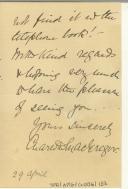 not find it in the
telephone book! –
With kind regards
& hoping very much
to have the pleasure
of seeing you...
Yours Sincerely
MacGregor
29 April